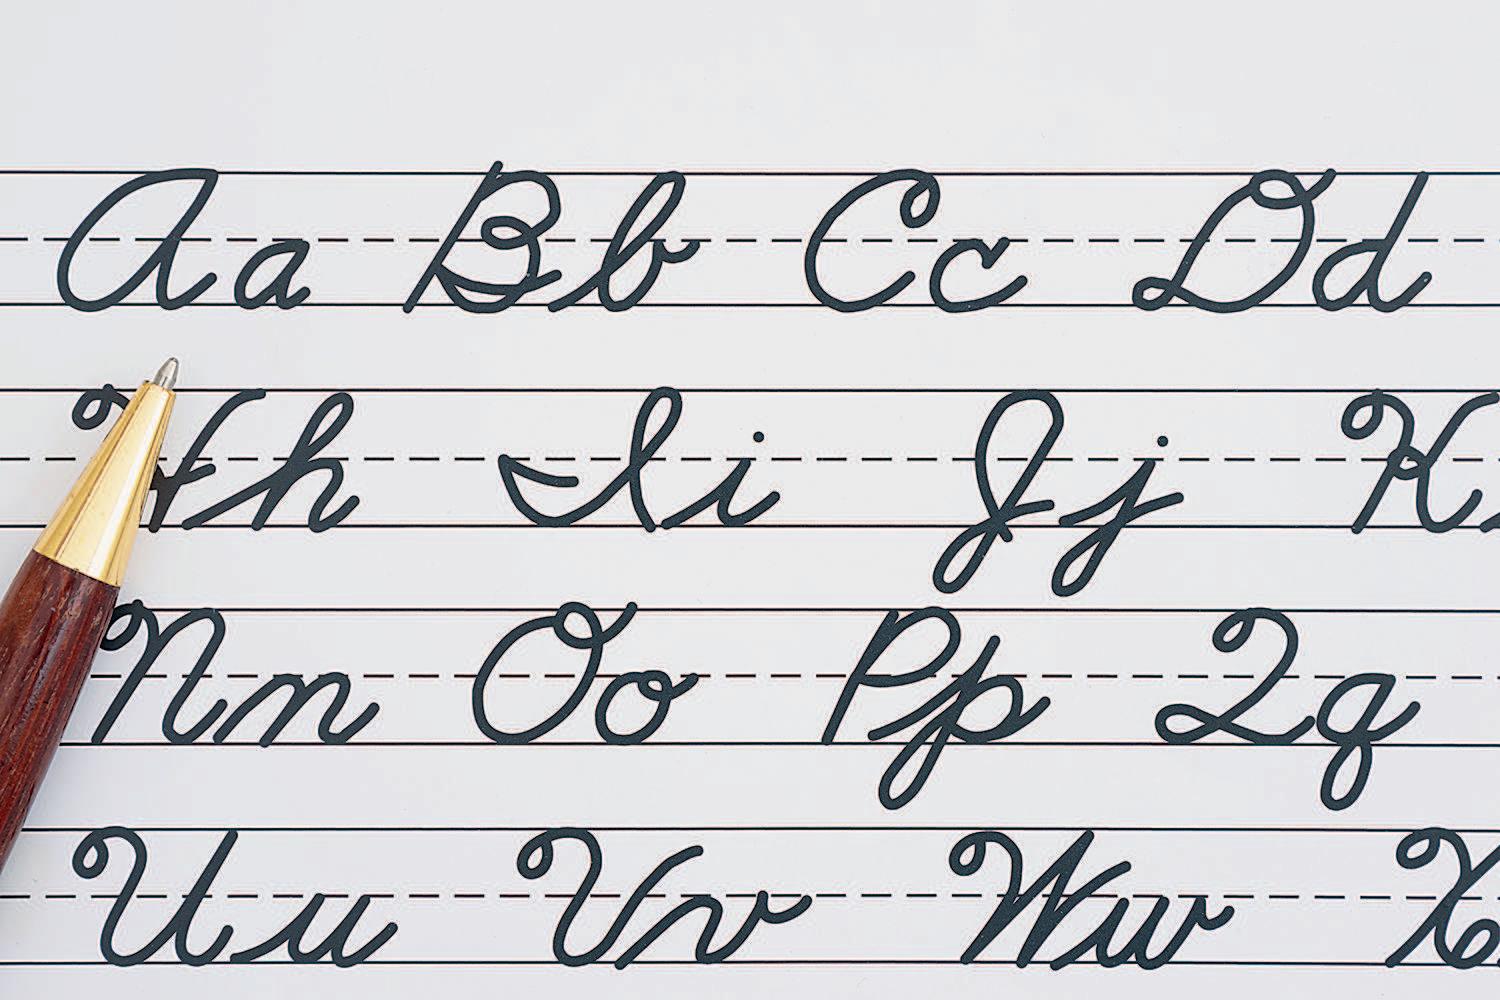 Aa Bb Cc Dd
Hh Ii Jj K
Nn Oo Pp Qq
Uu Vv Ww X